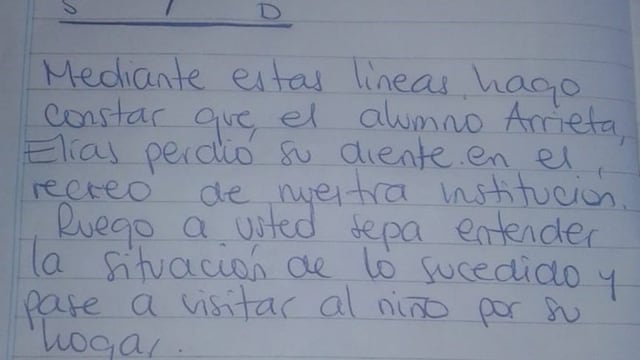 S / D
Mediante estas lineas, hago
constar que, el alumno Arrieta,
Elías perdió su diente en el,
recreo de nuestra institución.
Ruego a usted sepa entender
la situación de lo sucedido y
pase a visitar al niño por su
hogar.